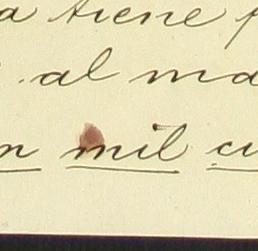 a tiene f
al ma
n mil cu